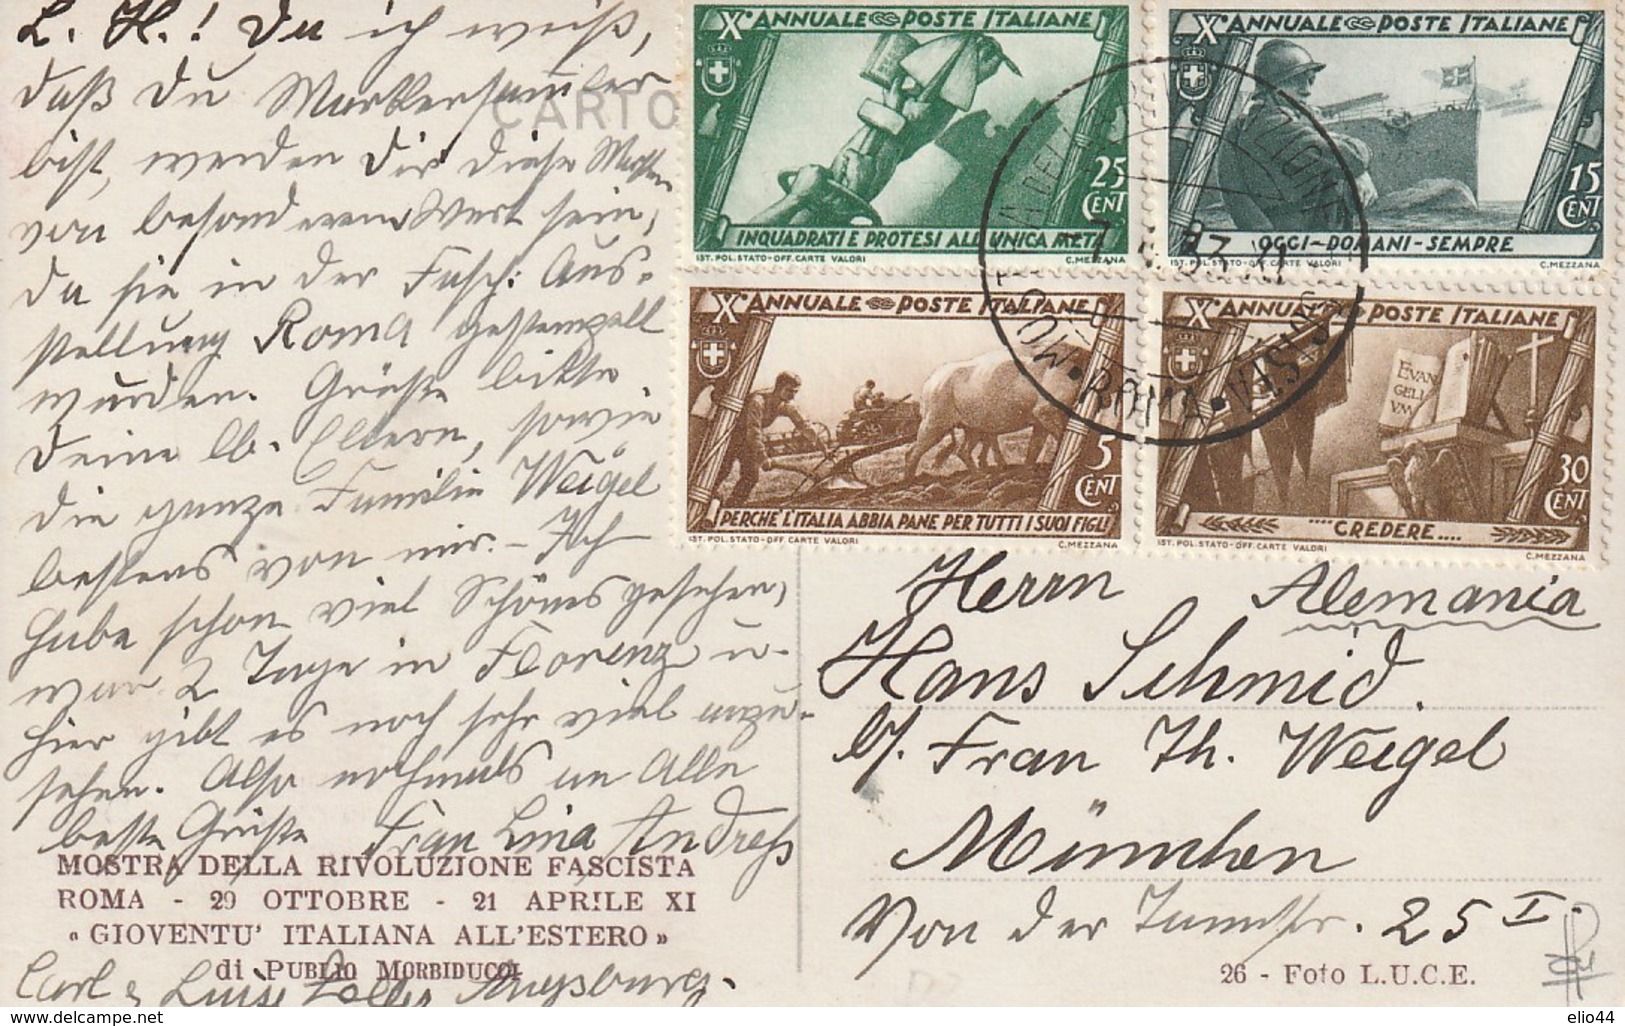 L. H.! Da ich weiß,
daß Du Markensammler
bist, werden Dir diese Marken
von besonderem Wert sein,
da sie in der Fasch: Aus-
stellung Roma gestempelt
wurden. Grüße bitte
Deine lb. Eltern, sowie
die ganze Familie Weigel
bestens von mir. – Ich
habe schon viel Schönes gesehen,
war 2 Tage in Florenz u.
hier gibt es noch sehr viel anzu-
sehen. Also nochmals an Alle
beste Grüße Frau Lina Andreß
Carl & Luise Augsburg.
CARTO
MOSTRA DELLA RIVOLUZIONE FASCISTA
ROMA - 29 OTTOBRE - 21 APRILE XI
« GIOVENTU' ITALIANA ALL'ESTERO »
di PUBLIO MORBIDUCCI
X° ANNUALE POSTE ITALIANE
25
CENT
INQUADRATI E PROTESI ALL'UNICA META
IST. POL. STATO-OFF. CARTE VALORI C. MEZZANA
X° ANNUALE POSTE ITALIANE
15
CENT
OGGI-DOMANI-SEMPRE
IST. POL. STATO-OFF. CARTE VALORI C. MEZZANA
X° ANNUALE POSTE ITALIANE
5
CENT
PERCHE L'ITALIA ABBIA PANE PER TUTTI I SUOI FIGLI
IST. POL. STATO-OFF CARTE VALORI C. MEZZANA
X° ANNUALE POSTE ITALIANE
EVAN
GELI
VM
30
CENT
....CREDERE....
IST. POL. STATO-OFF. CARTE VALORI C. MEZZANA
ROMA • VISI
Herrn Alemania
Hans Schmid.
b/. Frau Th. Weigel
München
Von der Tannstr. 25 I.
26 - Foto L.U.C.E.
https://www.delcampe.net elio44